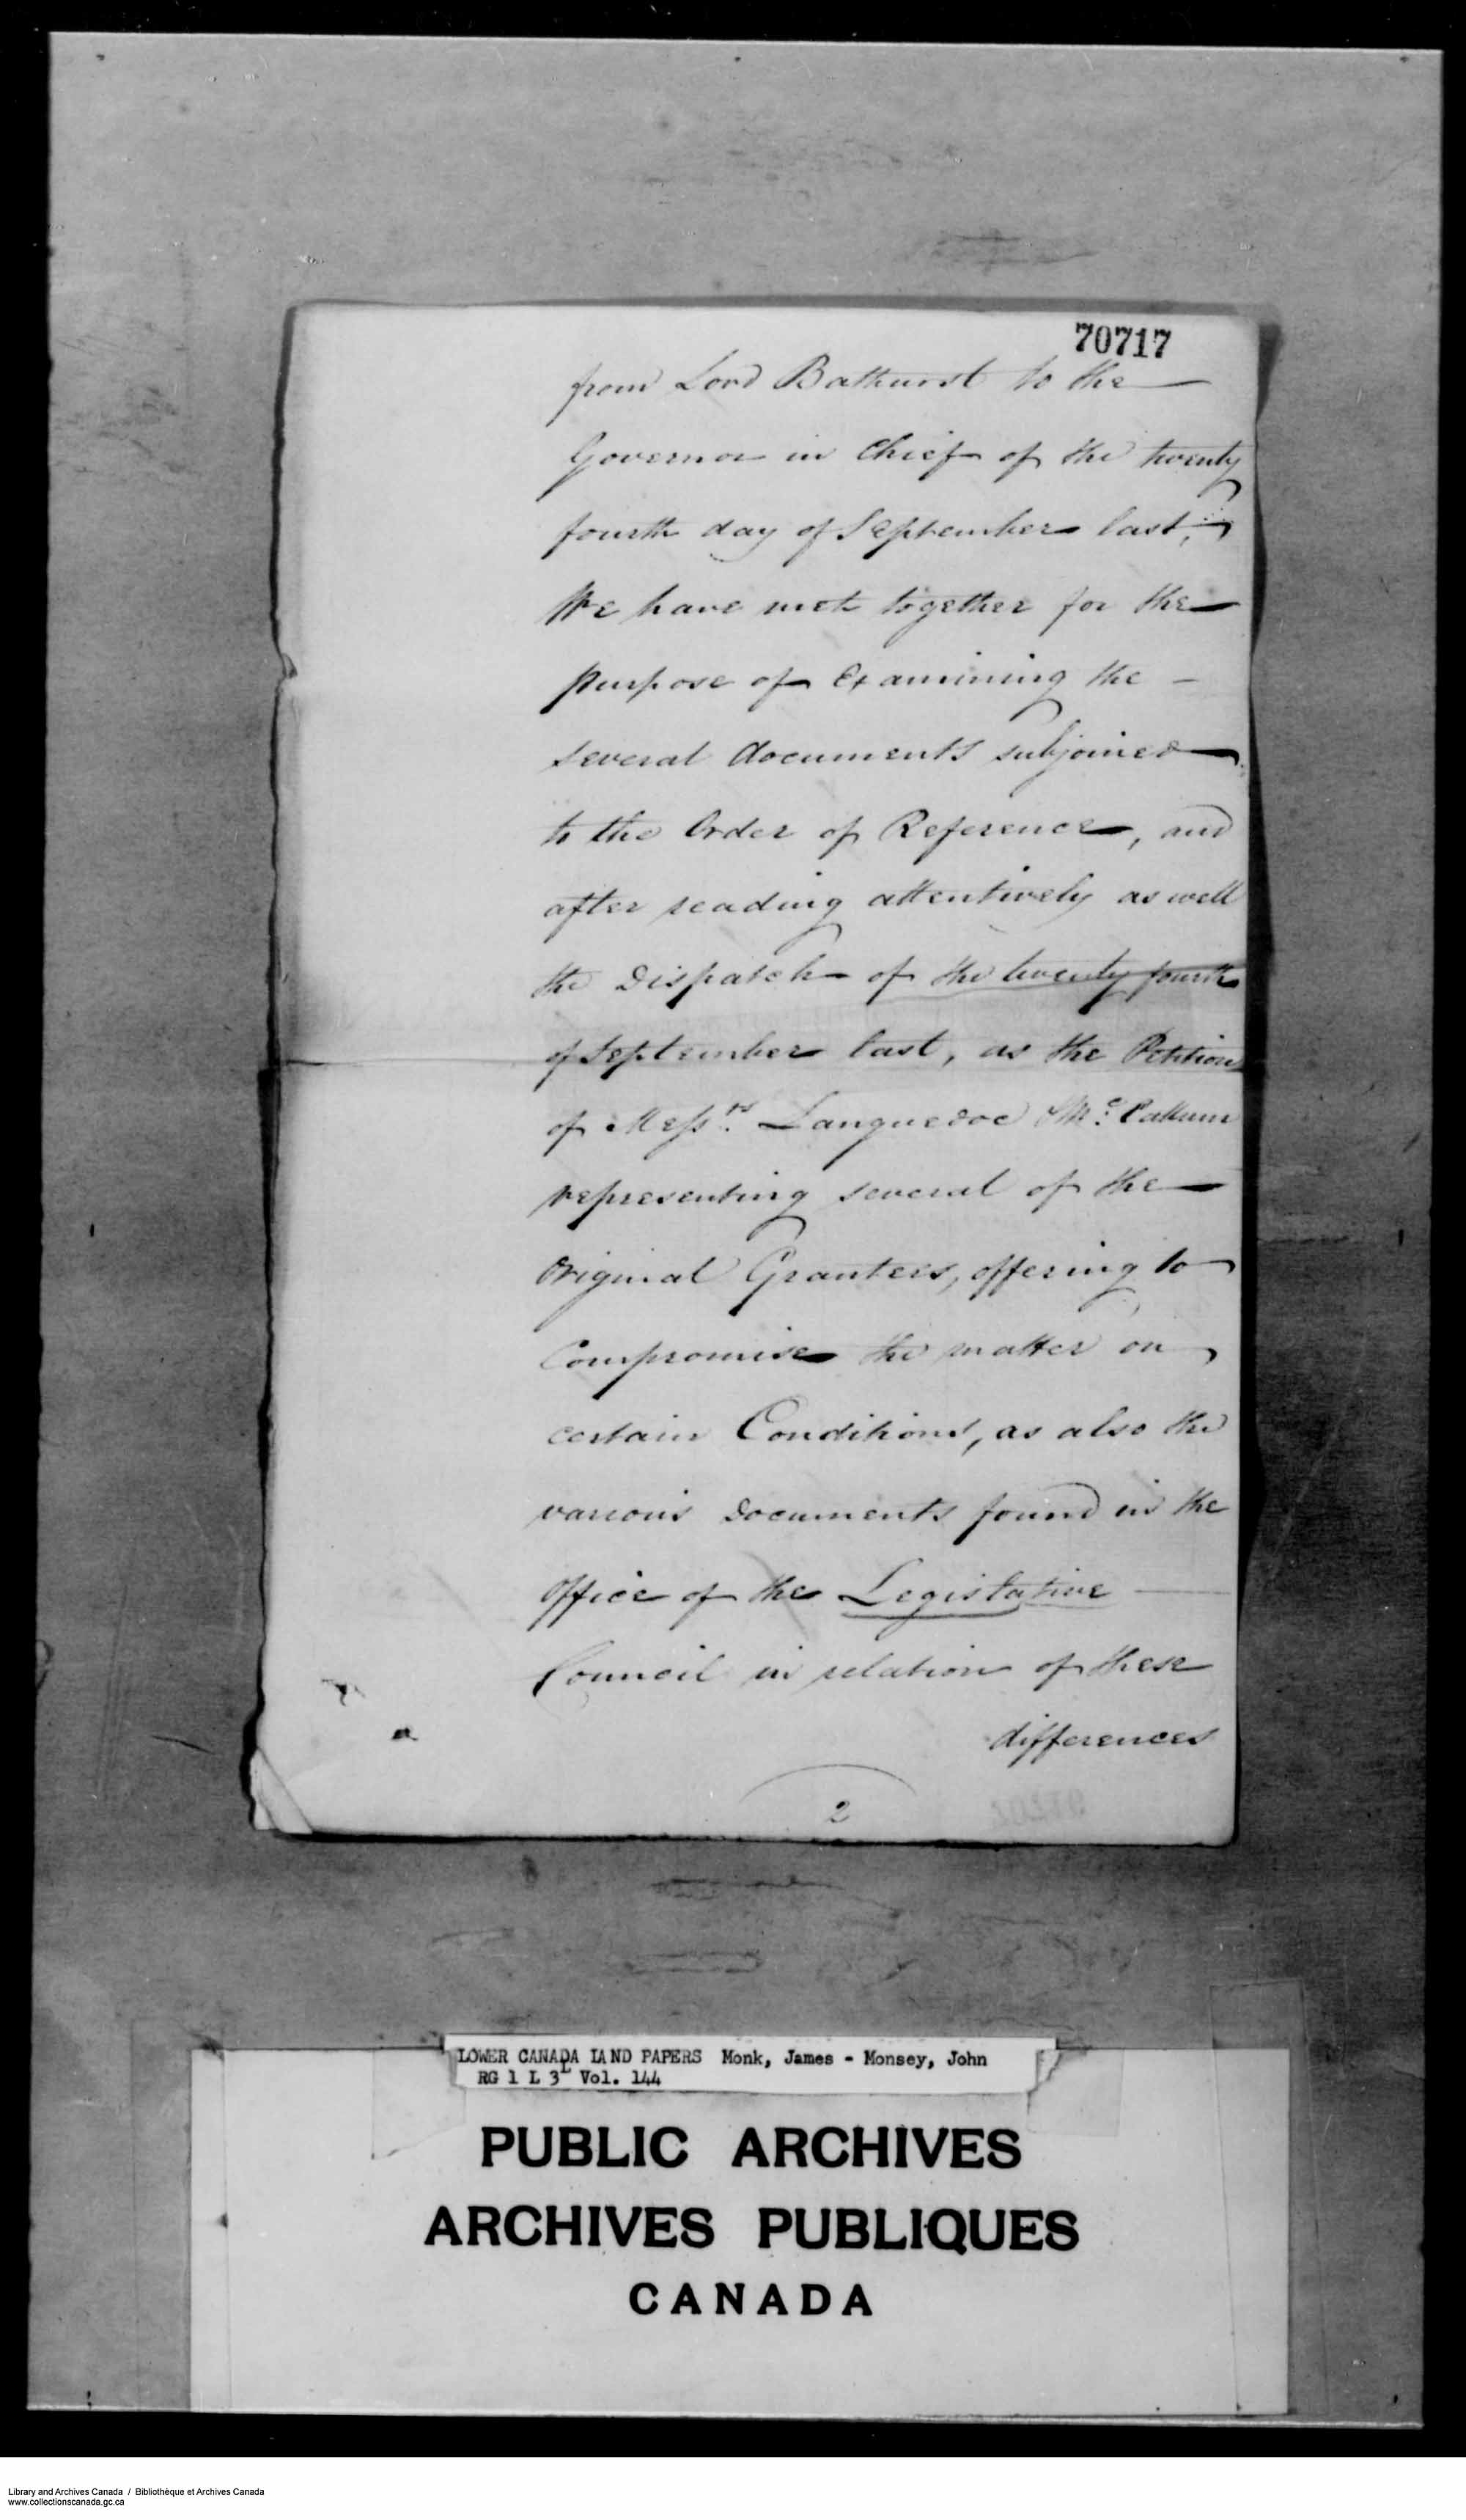 70717
from Lord Bathurst to the
Governor in Chief of the twenty
fourth day of September last,
We have met together for the
purpose of Examining the -
several documents subjoined
to the Order of Reference, and
after reading attentively as well
the Dispatch of the twenty fourth
of September last, as the Petition
of Messrs. Languedoc & Mc. Callum
representing several of the
Original Grantees, offering to
Compromise the matter on
certain Conditions, as also the
various Documents found in the
Office of the Legislative
Council in relation of these
differences
2
LOWER CANADA LAND PAPERS Monk, James - Monsey, John
RG 1 L 3L Vol. 144
PUBLIC ARCHIVES
ARCHIVES PUBLIQUES
CANADA
Library and Archives Canada / Bibliothèque et Archives Canada
www.collectionscanada.gc.ca